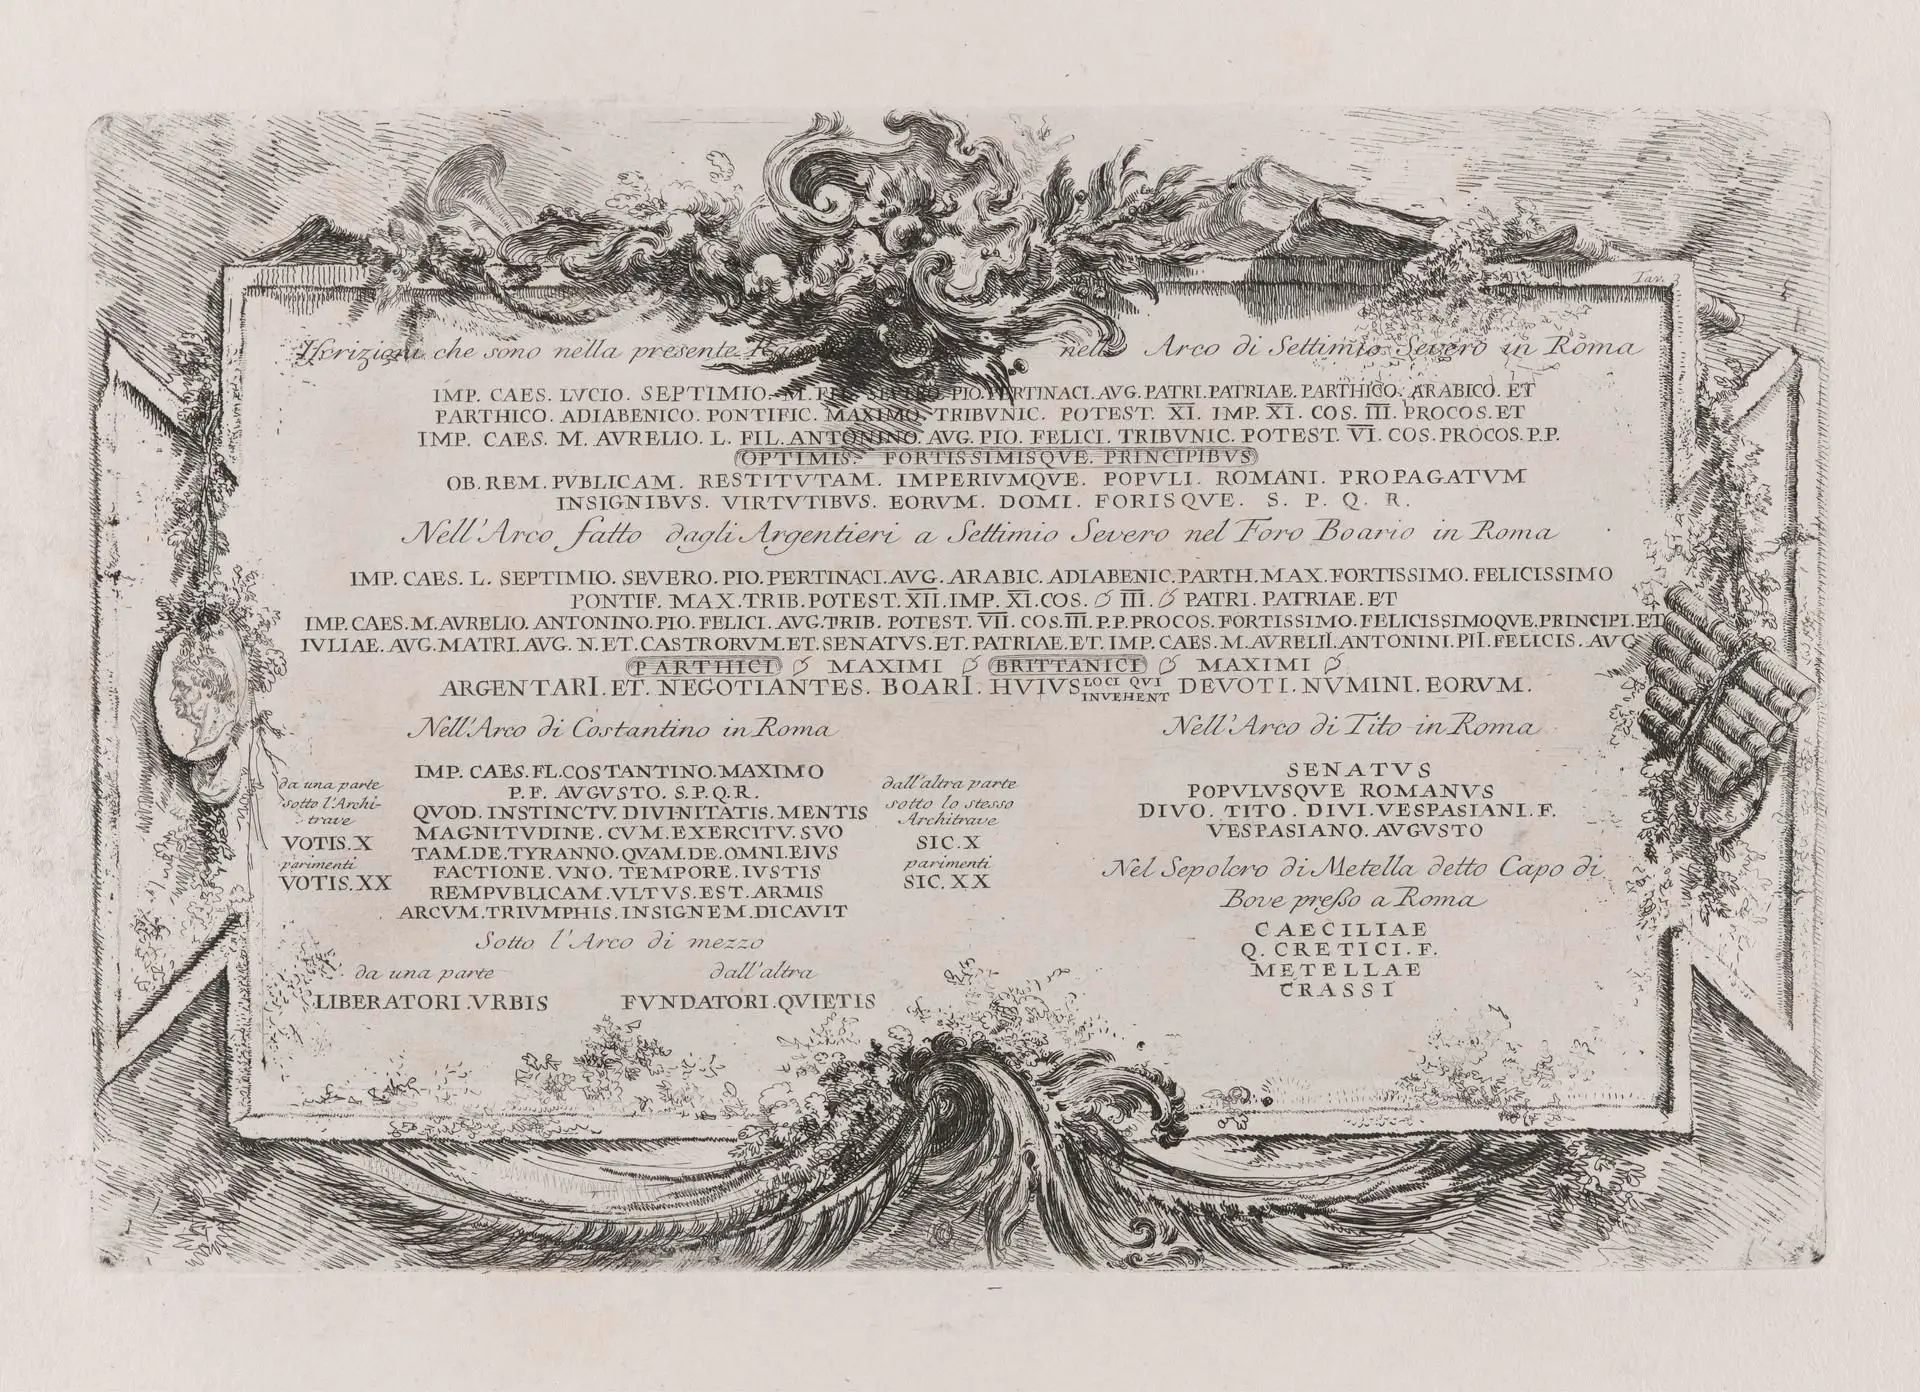 Tav. 2
Iscrizioni che sono nella presente nello Arco di Settimio Severo in Roma
IMP. CAES. LVCIO. SEPTIMIO. M. FIL. SEVERO. PIO. PERTINACI. AVG. PATRI. PATRIAE. PARTHICO. ARABICO. ET
PARTHICO. ADIABENICO. PONTIFIC. MAXIMO. TRIBVNIC. POTEST. XI. IMP. XI. COS. III. PROCOS. ET
IMP. CAES. M. AVRELIO. L. FIL. ANTONINO. AVG. PIO. FELICI. TRIBVNIC. POTEST. VI. COS. PROCOS. P. P.
OPTIMIS. FORTISSIMISQVE. PRINCIPIBVS
OB. REM. PVBLICAM. RESTITVTAM. IMPERIVMQVE. POPVLI. ROMANI. PROPAGATVM
INSIGNIBVS. VIRTVTIBVS. EORVM. DOMI. FORISQVE. S. P. Q. R.
Nell'Arco fatto dagli Argentieri a Settimio Severo nel Foro Boario in Roma
IMP. CAES. L. SEPTIMIO. SEVERO. PIO. PERTINACI. AVG. ARABIC. ADIABENIC. PARTH. MAX. FORTISSIMO. FELICISSIMO
PONTIF. MAX. TRIB. POTEST. XII. IMP. XI. COS. III. PATRI. PATRIAE. ET
IMP. CAES. M. AVRELIO. ANTONINO. PIO. FELICI. AVG. TRIB. POTEST. VII. COS. III. P. P. PROCOS. FORTISSIMO. FELICISSIMOQVE. PRINCIPI. ET
IVLIAE. AVG. MATRI. AVG. N. ET. CASTRORVM. ET. SENATVS. ET. PATRIAE. ET. IMP. CAES. M. AVRELII. ANTONINI. PII. FELICIS. AVG
PARTHICI MAXIMI BRITTANICI MAXIMI
ARGENTARI. ET. NEGOTIANTES. BOARI. HVIVS LOCI QVI INVEHENT DEVOTI. NVMINI. EORVM.
Nell'Arco di Costantino in Roma
da una parte
sotto l'Archi-
trave
VOTIS. X
parimenti
VOTIS. XX
IMP. CAES. FL. COSTANTINO. MAXIMO
P. F. AVGVSTO. S. P. Q. R.
QVOD. INSTINCTV. DIVINITATIS. MENTIS
MAGNITVDINE. CVM. EXERCITV. SVO
TAM. DE. TYRANNO. QVAM. DE. OMNI. EIVS
FACTIONE. VNO. TEMPORE. IVSTIS
REMPVBLICAM. VLTVS. EST. ARMIS
ARCVM. TRIVMPHIS. INSIGNEM. DICAVIT
dall'altra parte
sotto lo stesso
Architrave
SIC. X
parimenti
SIC. XX
Sotto l'Arco di mezzo
da una parte dall'altra
LIBERATORI. VRBIS FVNDATORI. QVIETIS
Nell'Arco di Tito in Roma
SENATVS
POPVLVSQVE ROMANVS
DIVO. TITO. DIVI. VESPASIANI. F.
VESPASIANO. AVGVSTO
Nel Sepolcro di Metella detto Capo di
Bove presso a Roma
CAECILIAE
Q. CRETICI. F.
METELLAE
CRASSI